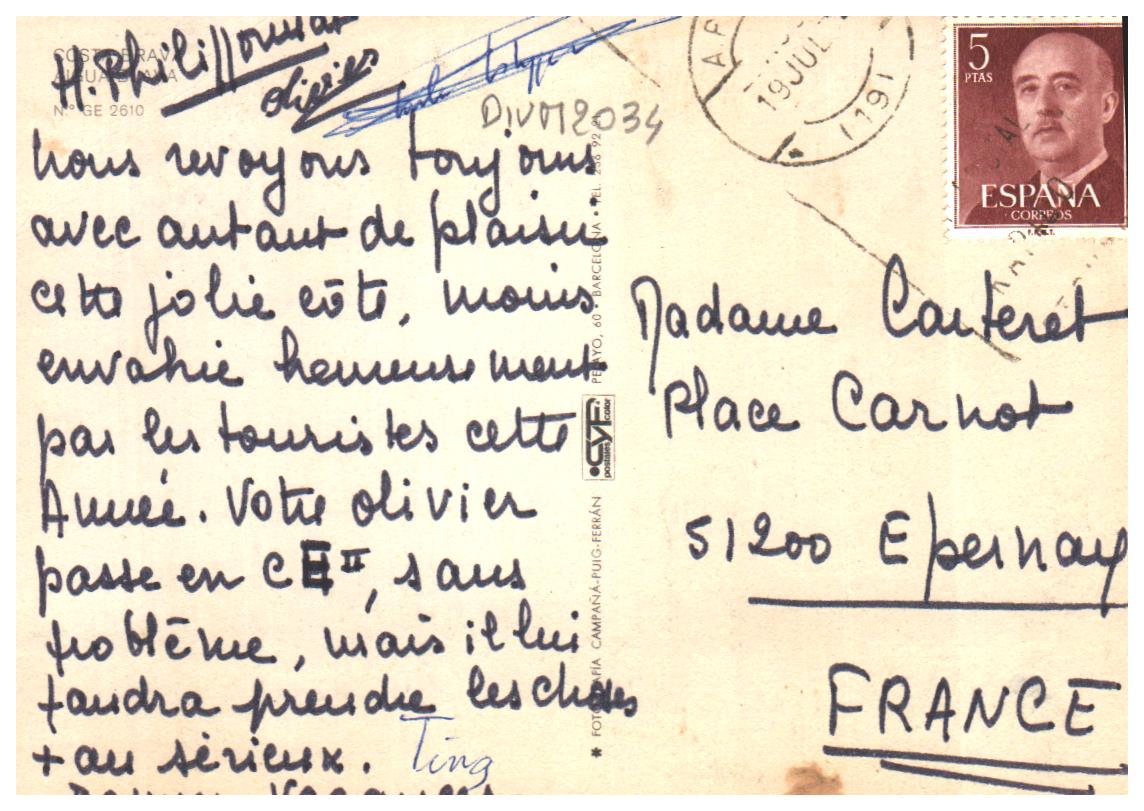 COSTA BRAVA
AIGUA BLAVA
N.º GE 2610
H. Philipponnat
olivier
DIVM2034
nous revoyons toujours
avec autant de plaisir
cette jolie côte, moins
envahie heureusement
par les touristes cette
Année. Votre olivier
passe en CE II, sans
problème, mais il lui
faudra prendre les choses
+ au sérieux.
Bonnes Vacances
Ting
* FOTOGRAFÍA CAMPAÑÁ-PUIG-FERRÁN
CYP
postales color
PELAYO, 60 • BARCELONA • TEL. 236 92
19 JUL
(119)
5
PTAS
ESPAÑA
CORREOS
F.N.M.T.
Madame Carteret
Place Carnot
51200 Epernay
FRANCE